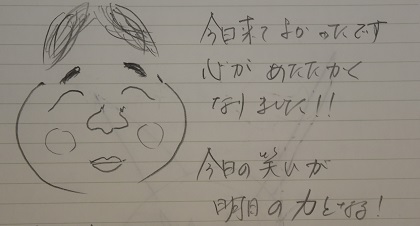 今日来てよかったです
心があたたかく
なりました!!
今日の笑いが
明日の力となる!